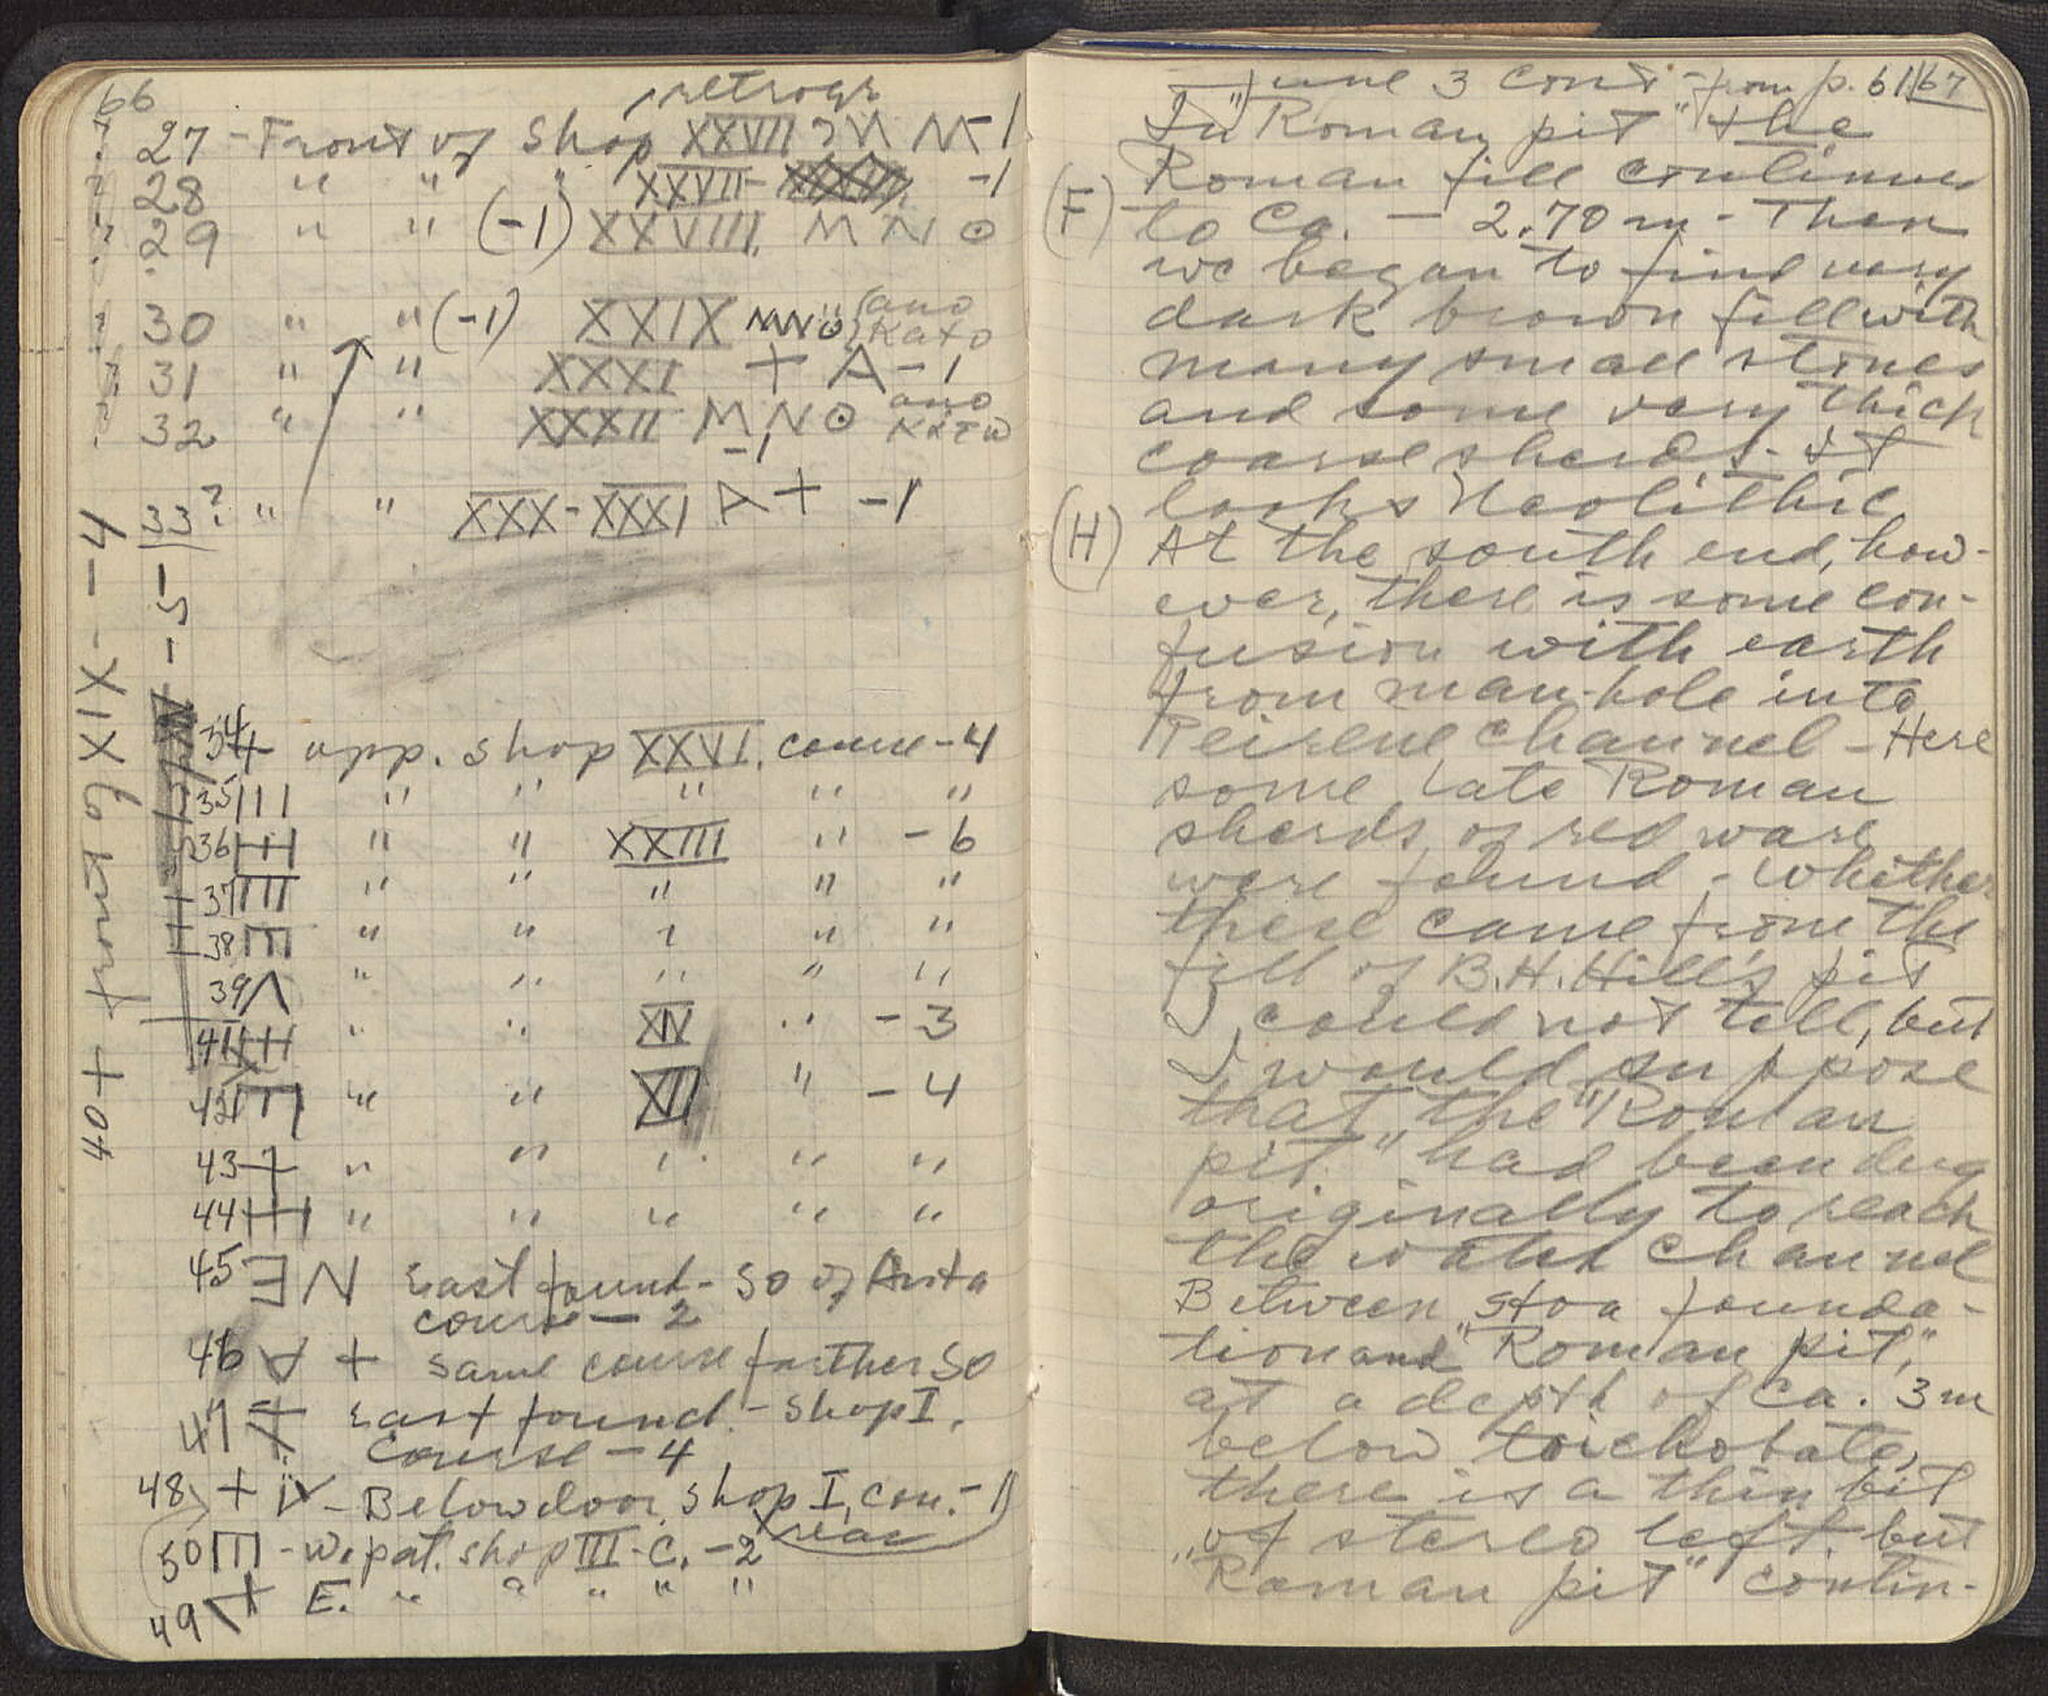 66
retrogr
27 - Front of Shop XXVII M N -1
28 " " " XXVII- -1
29 " " (-1) XXVIII. M N O
30 " " (-1) XXIX MNO {ano Kato
31 " " XXXI + A -1
32 " " XXXII M N O ano Κάτω
-1
33? " " XXX-XXXI A + -1
40 + front of XIX - -4
34 + opp. shop XXVI. course -4
35 III " " " " "
36 " " XXIII " -6
37 III " " " " "
38 " " " " "
39 Λ " " " " "
41 " " XIV " -3
42 " " XII " -4
43 + " " " " "
44 " " " " "
45 East found - So of Anta
course - 2
46 A + same course farther So
47 East found. - Shop I.
course - 4
48 + - Below door, shop I, cou. -1
rear
50 - W. pat. shop III - C. -2
49 E. " " " " "
June 3 cont from p. 61 67
In "Roman pit" the
Roman fill continues
(F) to Ca. - 2.70 m - Then
we began to find very
dark brown fill with
many small stones
and some very thick
coarse sherds - It
looks Neolithic
(H) At the south end, how-
ever, there is some con-
fusion with earth
from man-hole into
Peirene channel - Here
some late Roman
sherds of red ware
were found - whether
these came from the
fill of B.H. Hill's pit
I could not tell, but
I would suppose
that the "Roman
pit" had been dug
originally to reach
the water channel
Between stoa founda-
tion and "Roman pit",
at a depth of ca. 3m
below toichobate,
there is a thin bit
of stereo left, but
"Roman pit" contin-